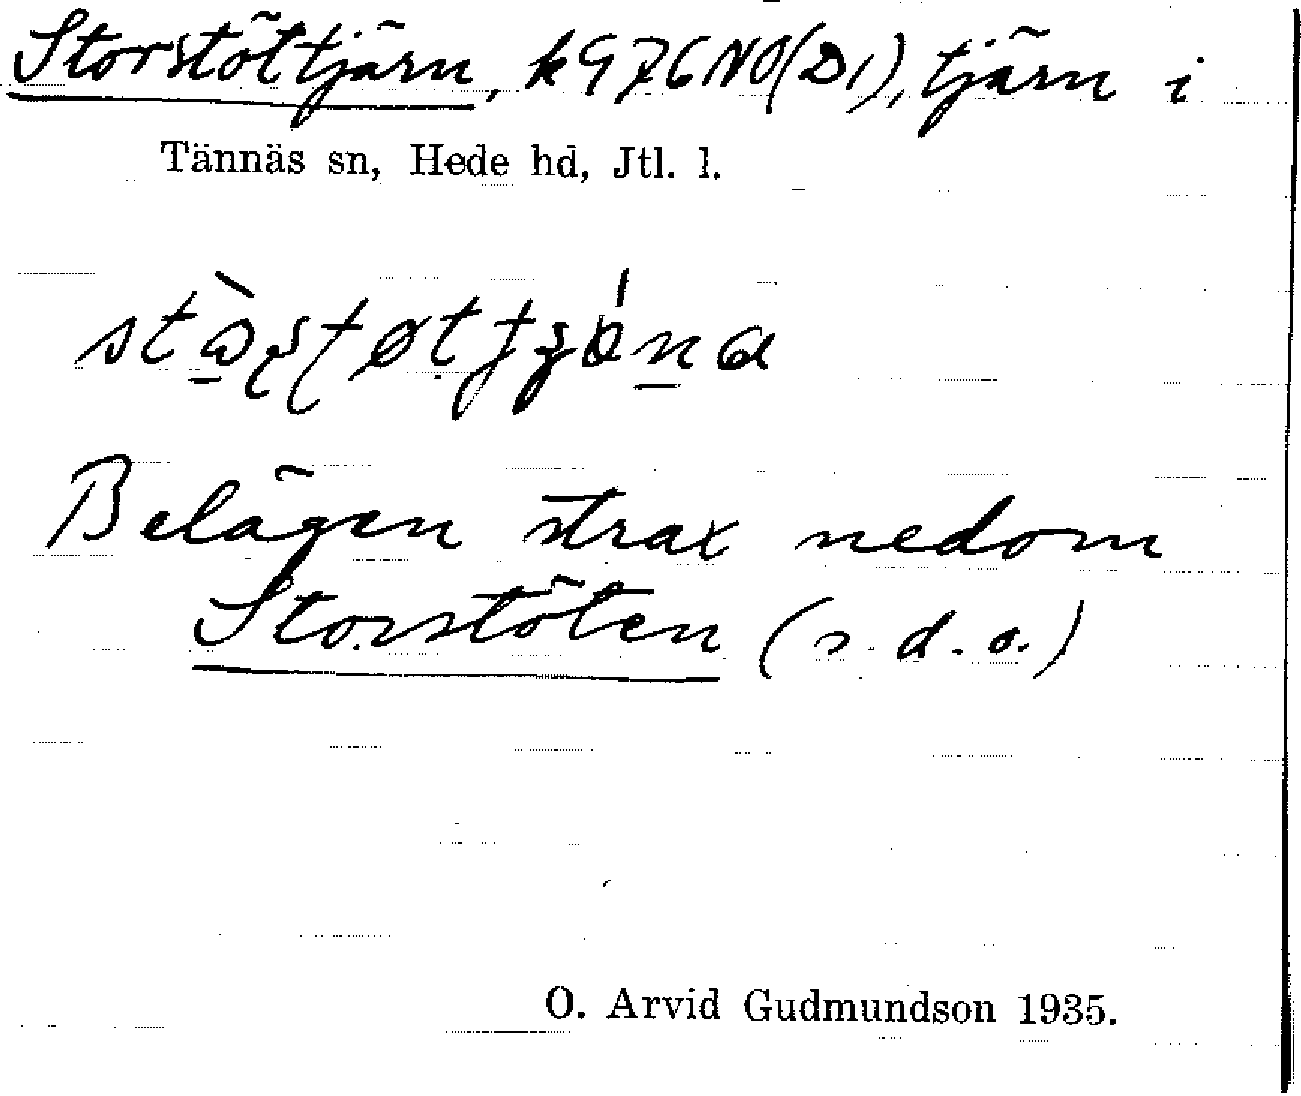 Storstöttjärn, k 976 NO(D1), tjärn i
Tännäs sn, Hede hd, Jtl. l.
Belägen strax nedom
Storstöten (s.d.o.)
O. Arvid Gudmundson 1935.